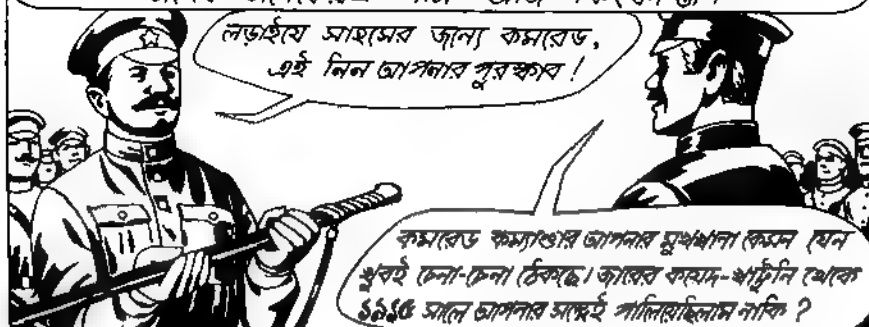 লড়াইযে সাহসের জন্যে কমরেড,
এই নিন আপনার পুরস্কার !
কমরেড কম্যাণ্ডার আপনার মুখখানা কেমন যেন
খুবই চেনা-চেনা ঠেকছে। জারের কয়েদ-খাটুনি থেকে
১৯১৫ সালে আপনার সঙ্গেই পালিয়েছিলাম নাকি ?